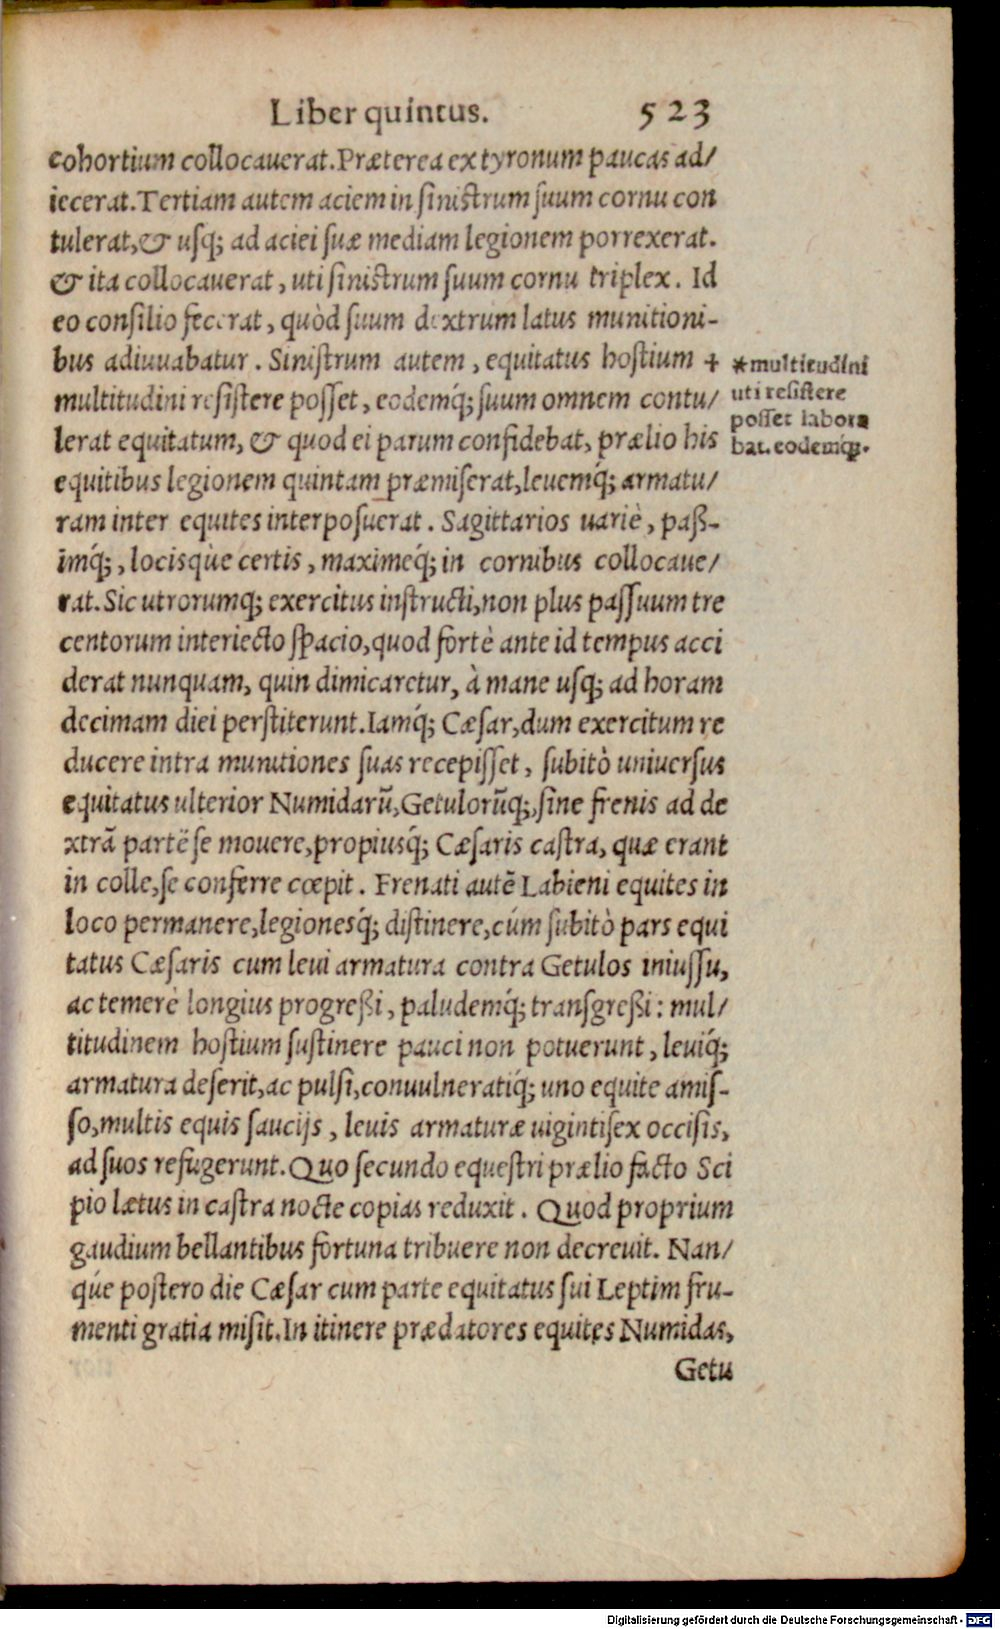 Liber quintus. 523
cohortium collocauerat. Præterea ex tyronum paucas ad/
iecerat. Tertiam autem aciem in sinistrum suum cornu con
tulerat, & usq; ad aciei suæ mediam legionem porrexerat.
& ita collocauerat, uti sinistrum suum cornu triplex. Id
eo consilio fecerat, quòd suum dextrum latus munitioni-
bus adiuuabatur. Sinistrum autem, equitatus hostium +
multitudini resistere posset, eodemq́; suum omnem contu/
lerat equitatum, & quod ei parum confidebat, prælio his
equitibus legionem quintam præmiserat, leuemq́; armatu/
ram inter equites interposuerat. Sagittarios uariè, paß-
imq́;, locisqùe certis, maximeq́; in cornibus collocaue/
rat. Sic utrorumq; exercitus instructi, non plus passuum tre
centorum interiecto spacio, quod fortè ante id tempus acci
derat nunquam, quin dimicaretur, à mane usq; ad horam
decimam diei perstiterunt. Iamq́; Cæsar, dum exercitum re
ducere intra munitiones suas recepisset, subitò uniuersus
equitatus ulterior Numidarū, Getulorūq;, sine frenis ad de
xtrā partē se mouere, propiusq́; Cæsaris castra, quæ erant
in colle, se conferre cœpit. Frenati autē Labieni equites in
loco permanere, legionesq́; distinere, cúm subitò pars equi
tatus Cæsaris cum leui armatura contra Getulos iniussu,
ac temerè longius progreßi, paludemq́; transgreßi: mul/
titudinem hostium sustinere pauci non potuerunt, leuiq́;
armatura deserit, ac pulsi, conuulneratiq́; uno equite amis-
so, multis equis saucijs, leuis armaturæ uigintisex occisis,
ad suos refugerunt. Quo secundo equestri prælio facto Sci
pio lætus in castra nocte copias reduxit. Quod proprium
gaudium bellantibus fortuna tribuere non decreuit. Nan/
qúe postero die Cæsar cum parte equitatus sui Leptim fru-
menti gratia misit. In itinere prædatores equites Numidas,
Getu
*multitudini
uti resistere
posset labora
bat. eodemq́;.
Digitalisierung gefördert durch die Deutsche Forschungsgemeinschaft - DFG